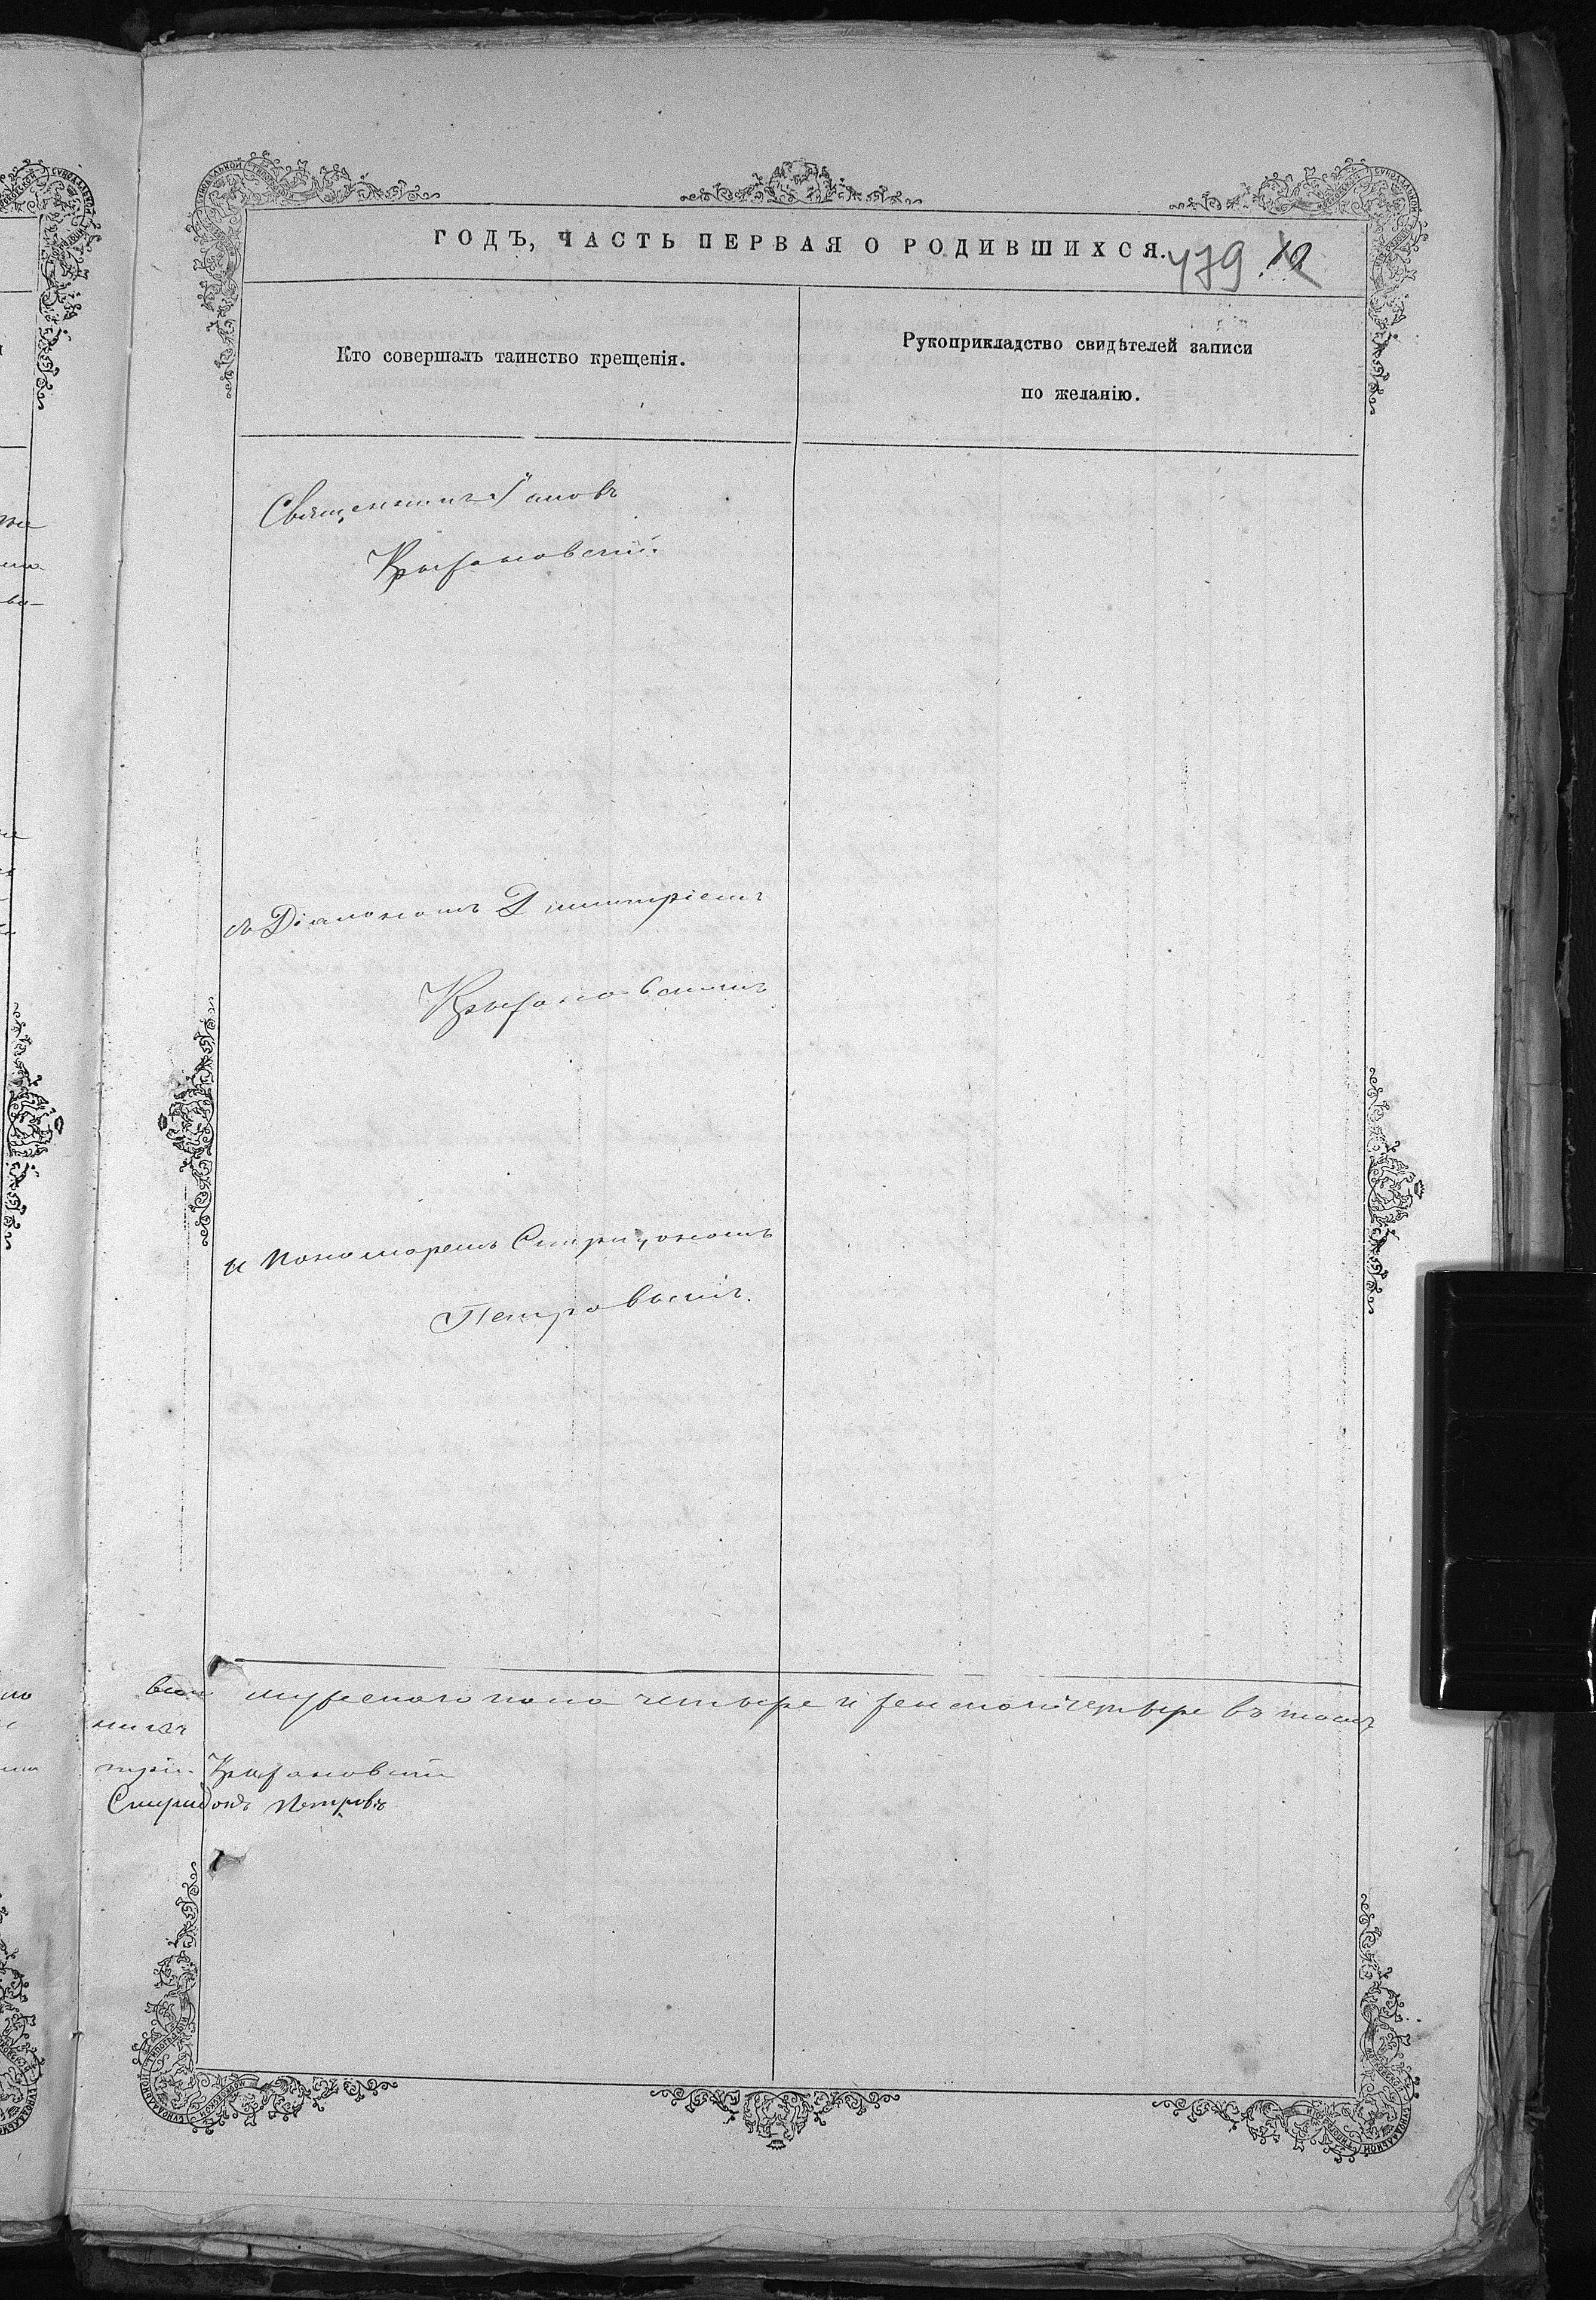 ГОДЪ, ЧАСТЬ ПЕРВАЯ О РОДИВШИХСЯ.
479
Кто совершалъ таинство крещенія.
Рукоприкладство свидѣтелей записи
по желанію.
Священникъ Іаковъ
Крыжановскій
съ Діакономъ Димитріемъ
Крыжановскимъ
и Пономаремъ Спиридономъ
Петровымъ.
мужескаго пола четыре и женскаго четыре въ томъ
Крыжановскій
Спиридонъ Петровъ